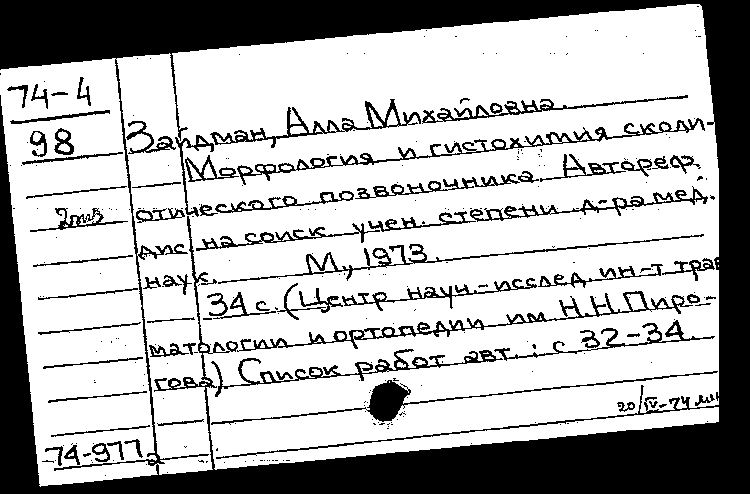 74-4
98
2экз
Зайдман, Алла Михайловна.
Морфология и гистохимия сколи-
отического позвоночника. Автореф.
дис. на соиск. учен. степени д-ра мед.
наук. М., 1973.
34 с. (Центр. науч.-исслед. ин-т трав
матологии и ортопедии им. Н.Н. Пиро-
гова) Список работ авт.: с. 32-34.
20/IV-74
74-977